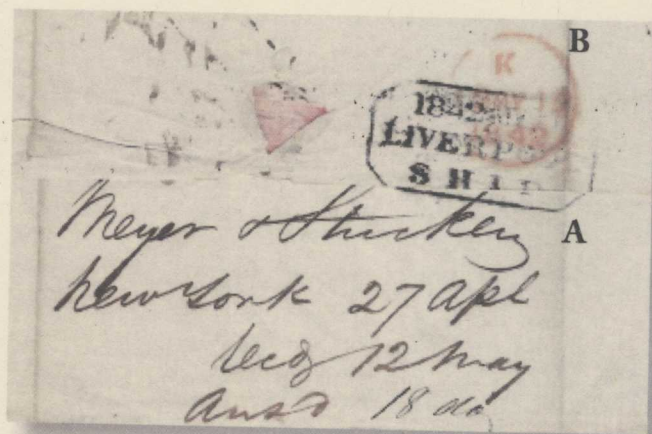 B
K
1842
LIVERP
SHIP
A
Meyer & Stuckey
New York 27 Apl
recd 12 May
Ansd 18 do